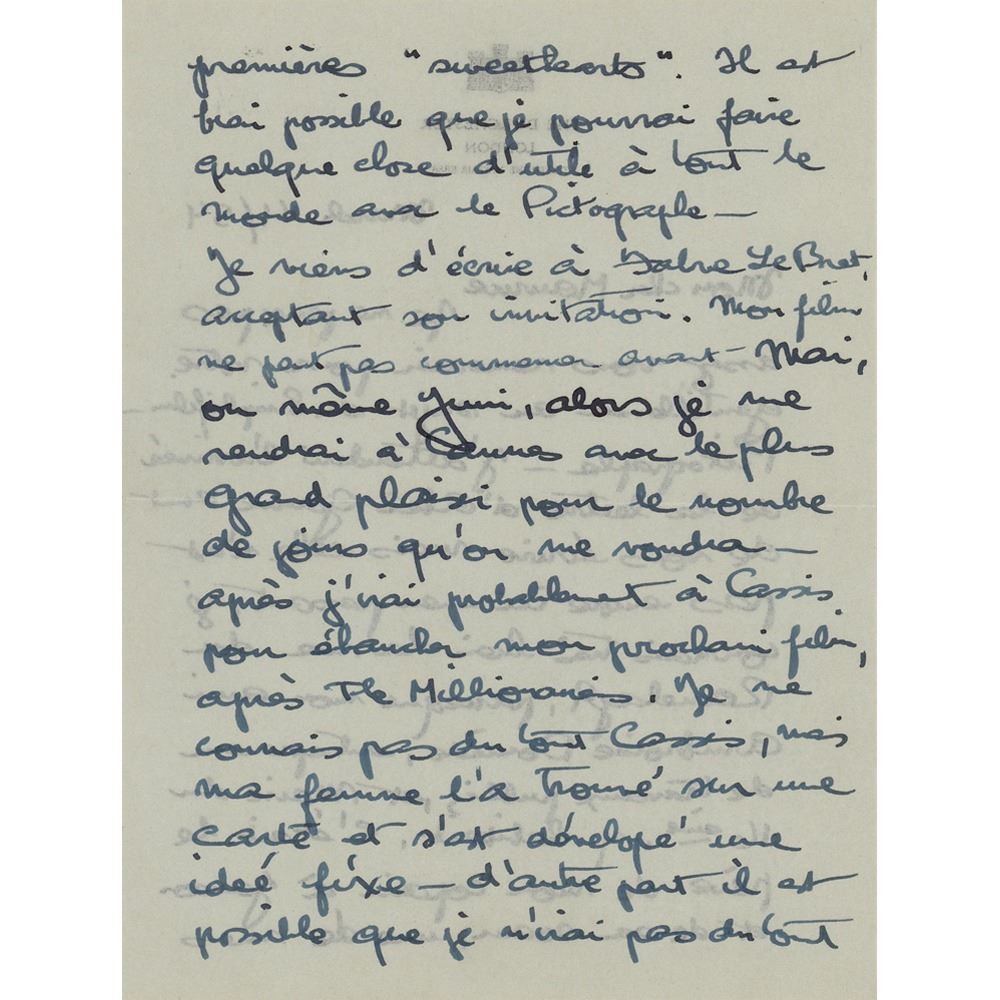 premières "sweethearts". Il est
bien possible que je pourrai faire
quelque chose d'utile à tout le
monde avec le Pictographe —
Je viens d'écrire à Fabre Le Bret,
acceptant son invitation. Mon film
ne peut pas commencer avant Mai,
ou même Juni, alors je me
rendrai à Cannes avec le plus
grand plaisir pour le nombre
de jours qu'on me voudra —
après j'irai probablement à Cassis
pour ébaucher mon prochain film,
après The Millionairess. Je ne
connais pas du tout Cassis, mais
ma femme l'a trouvé sur une
carte et s'est dévelopé une
ideé fixe — d'autre part il est
possible que je n'irai pas du tout